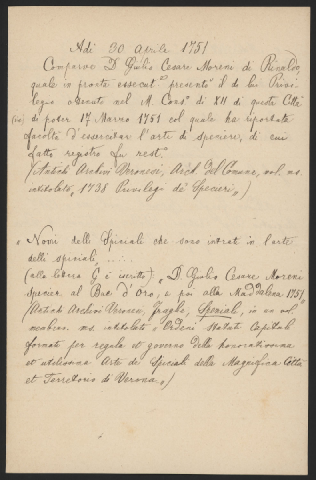 Adi 30 Aprile 1751
Comparve D. Giulio Cesare Moreni di Rinaldo,
quale in pronta essecut.e presentò il di lui Privi
legio ottenuto nel M. Cons.o di XII di questa Città
(sic) di poter 17 Marzo 1751 col quale ha riportata
facoltà d'essercitar l'arte di speciere, di cui
fatto registro fu rest.o
(Antichi Archivi Veronesi, Arch. del Comune, vol. ms.
intitolato „ 1738 Privilegi de Specieri „)
„ Nomi delli Spiciali che sono intrati in l'arte
delli spiciali, .....
(alla lettera G è iscritto) „ D. Giulio Cesare Moreni
Specier al Bue d'Oro, e poi alla Maddalena 1751 „
(Antichi Archivi Veronesi, Fraglie, Speziali, in un vol.
membran. ms. intitolato „ Ordeni Statuti Capitoli
formati per regula et governo della honoratissima
et utilissima Arte de Speciali della Magnifica Città
et Territorio di Verona „)